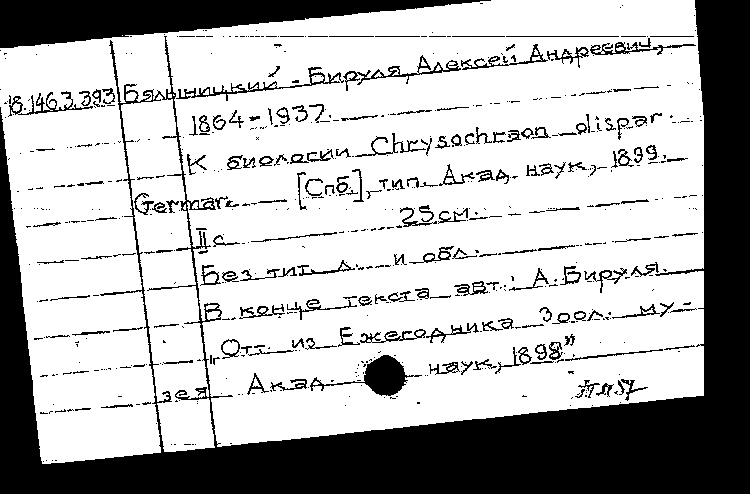 18.146.3.393 Бялыницкий - Бируля, Алексей Андреевич,
1864-1937.
К биологии Chrysochraon dispar.
Germar. [Спб.], тип. Акад. наук, 1899.
25 см.
II с
Без тит. л. и обл.
В конце текста авт.: А. Бируля.
„Отт. из Ежегодника Зоол. му-
зея Акад. наук, 1898”